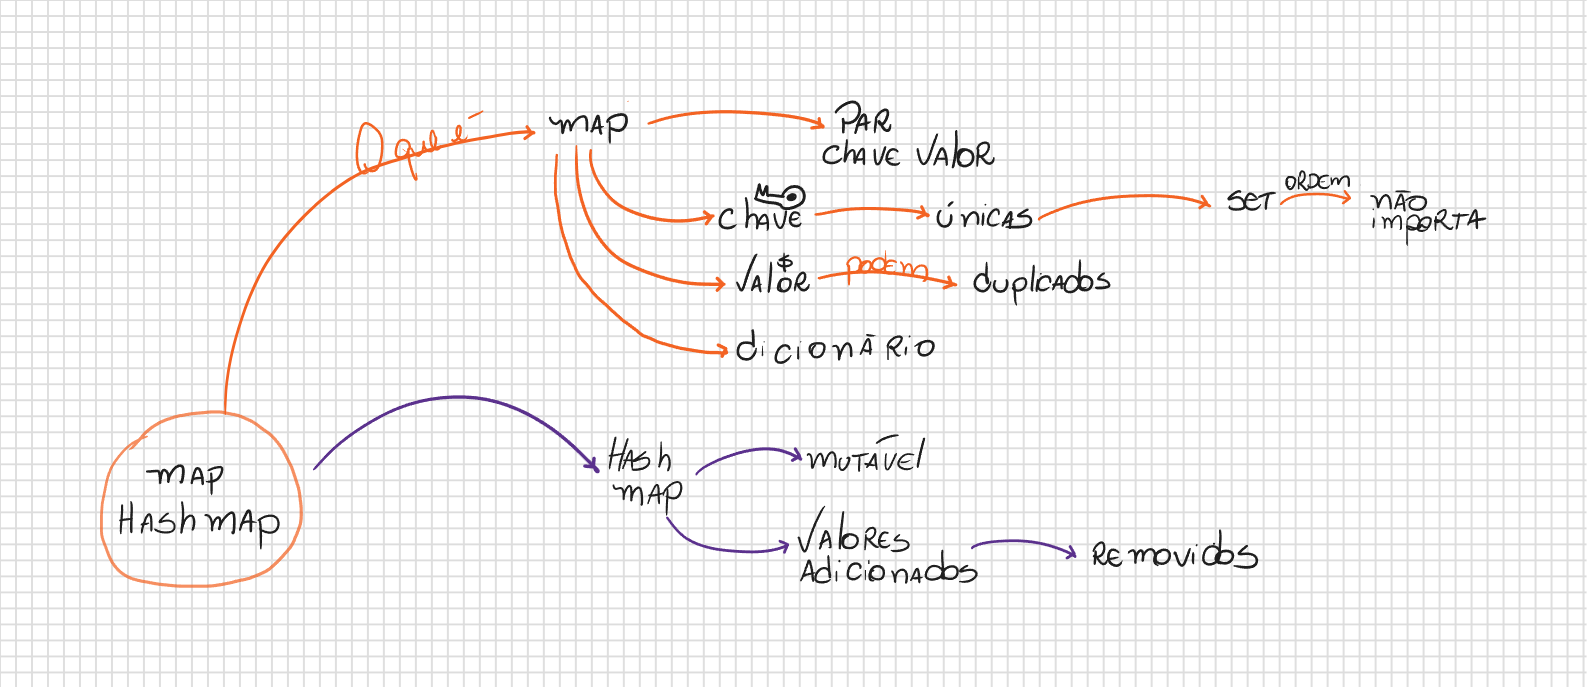 O que é
MAP
PAR
CHAVE VALOR
CHAVE
ÚNICAS
SET
ORDEM
NÃO
IMPORTA
VALOR
$
PODEM
DUPLICADOS
DICIONÁRIO
MAP
HASHMAP
HASH
MAP
MUTÁVEL
VALORES
ADICIONADOS
REMOVIDOS